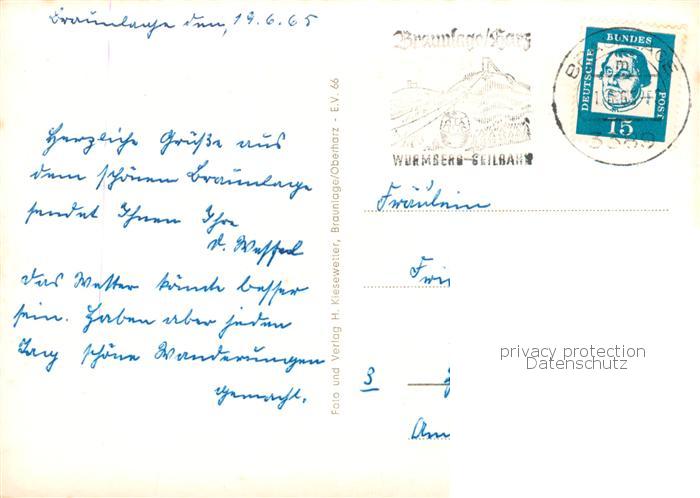 Braunlage den, 19.6.65
Herzliche Grüße aus
dem schönen Braunlage
sendet Ihnen Ihre
d. Wessel
Das Wetter könnte besser
sein. Haben aber jeden
Tag schöne Wanderungen
gemacht.
Foto und Verlag H. Kiesewetter, Braunlage/Oberharz - E.V. 66
Braunlage/Harz
WURMBERG-SEILBAHN
DEUTSCHE BUNDES POST
15
3389
Fräulein
3
privacy protection
Datenschutz